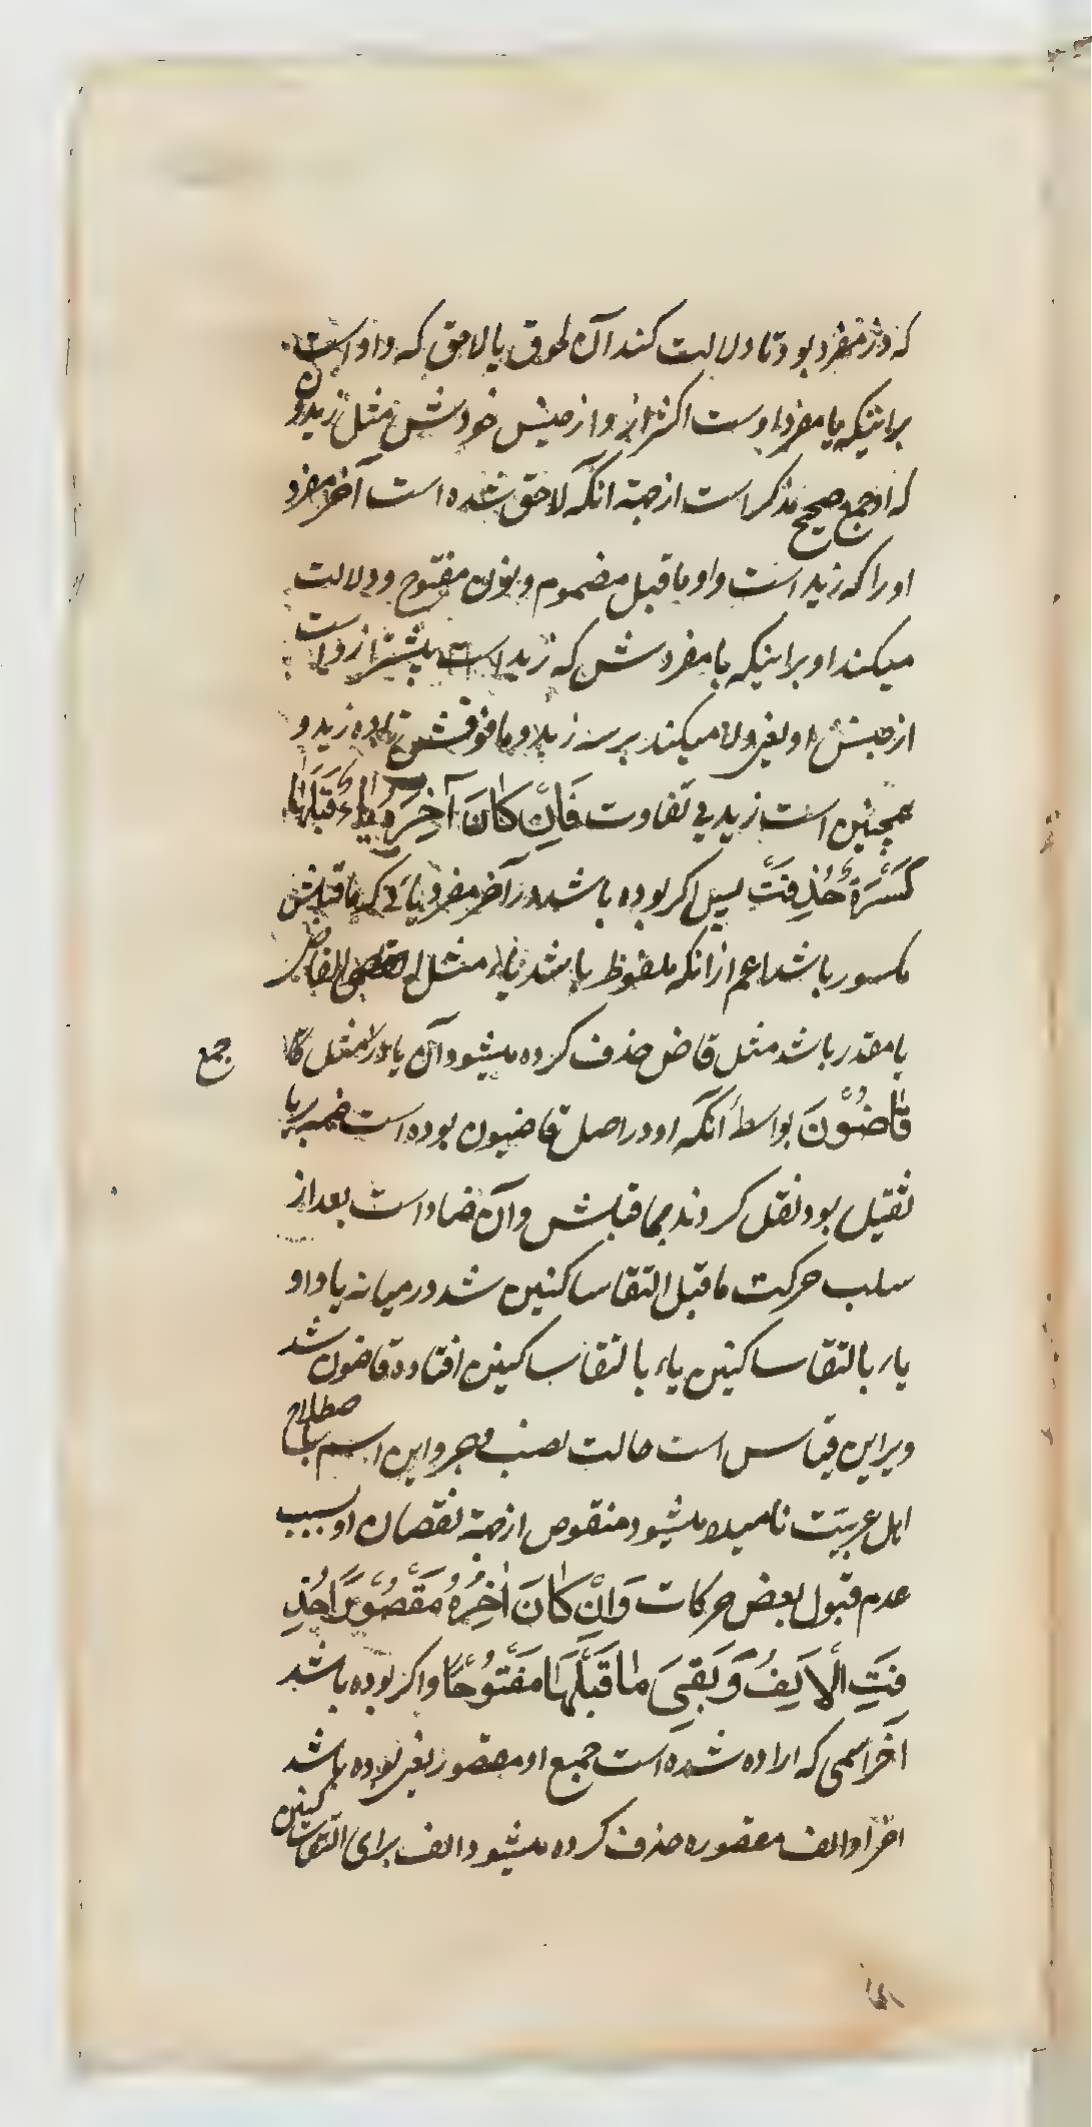 که در مفرد بود تا دلالت کند آن لحوق یا لاحق که واو است
براینکه با مفرد اوست اکثر از و از جنس خودش مثل زیدون
که او جمع صحیح مذکر است از جهة انکه لاحق شده است آخر مفرد
او را که زید است واو ماقبل مضموم و نون مفتوح و دلالت
میکند او براینکه با مفردش که زید است بیشتر از واست
از جنس او یعنی دلا میکند بر سه زید و مافوقش زیاده زید و
همچنین است زید بی تفاوت فَاِنْ كَانَ آخِرَهُ یاء قَبْلَهَا
كَسْرَةٌ حُذِفَتْ پس اکر بوده باشد در آخر مفرد یائی که ماقبلش
مکسور باشد اعم از انکه ملفوظ باشد یاء مثل القاضی
یا مقدر باشد مثل قاض حذف کرده میشود آن یا در مثل
جمع
قَاضُوْنَ بواسطۀ آنکه او در اصل قاضیون بوده است ضمه بر یا
ثقیل بود نقل کردند بماقبلش و آن ضاد است بعد از
سلب حرکت ماقبل التقا ساکنین شد در میانه یا و واو
یاء بالتقا ساکنین یاء بالتقا ساکنین افتاده قاضون شد
و براین قیاس است حالت نصب و جر و این اسم باصطلاح
اهل عربیّت نامیده میشود منقوص از جهة نقصان او بسبب
عدم قبول بعض حرکات وَاِنْ كَانَ اٰخِرُهُ مَقْصُوْرًا حُذِ
فَتِ الْاَلِفُ وَبَقِیَ مَا قَبْلَهَا مَفْتُوْحًا و اکر بوده باشد
آخر اسمی که اراده شده است جمع او مقصور یعنی بوده باشد
اخر او الف مقصوره حذف کرده میشود الف برای التقا ساکنین